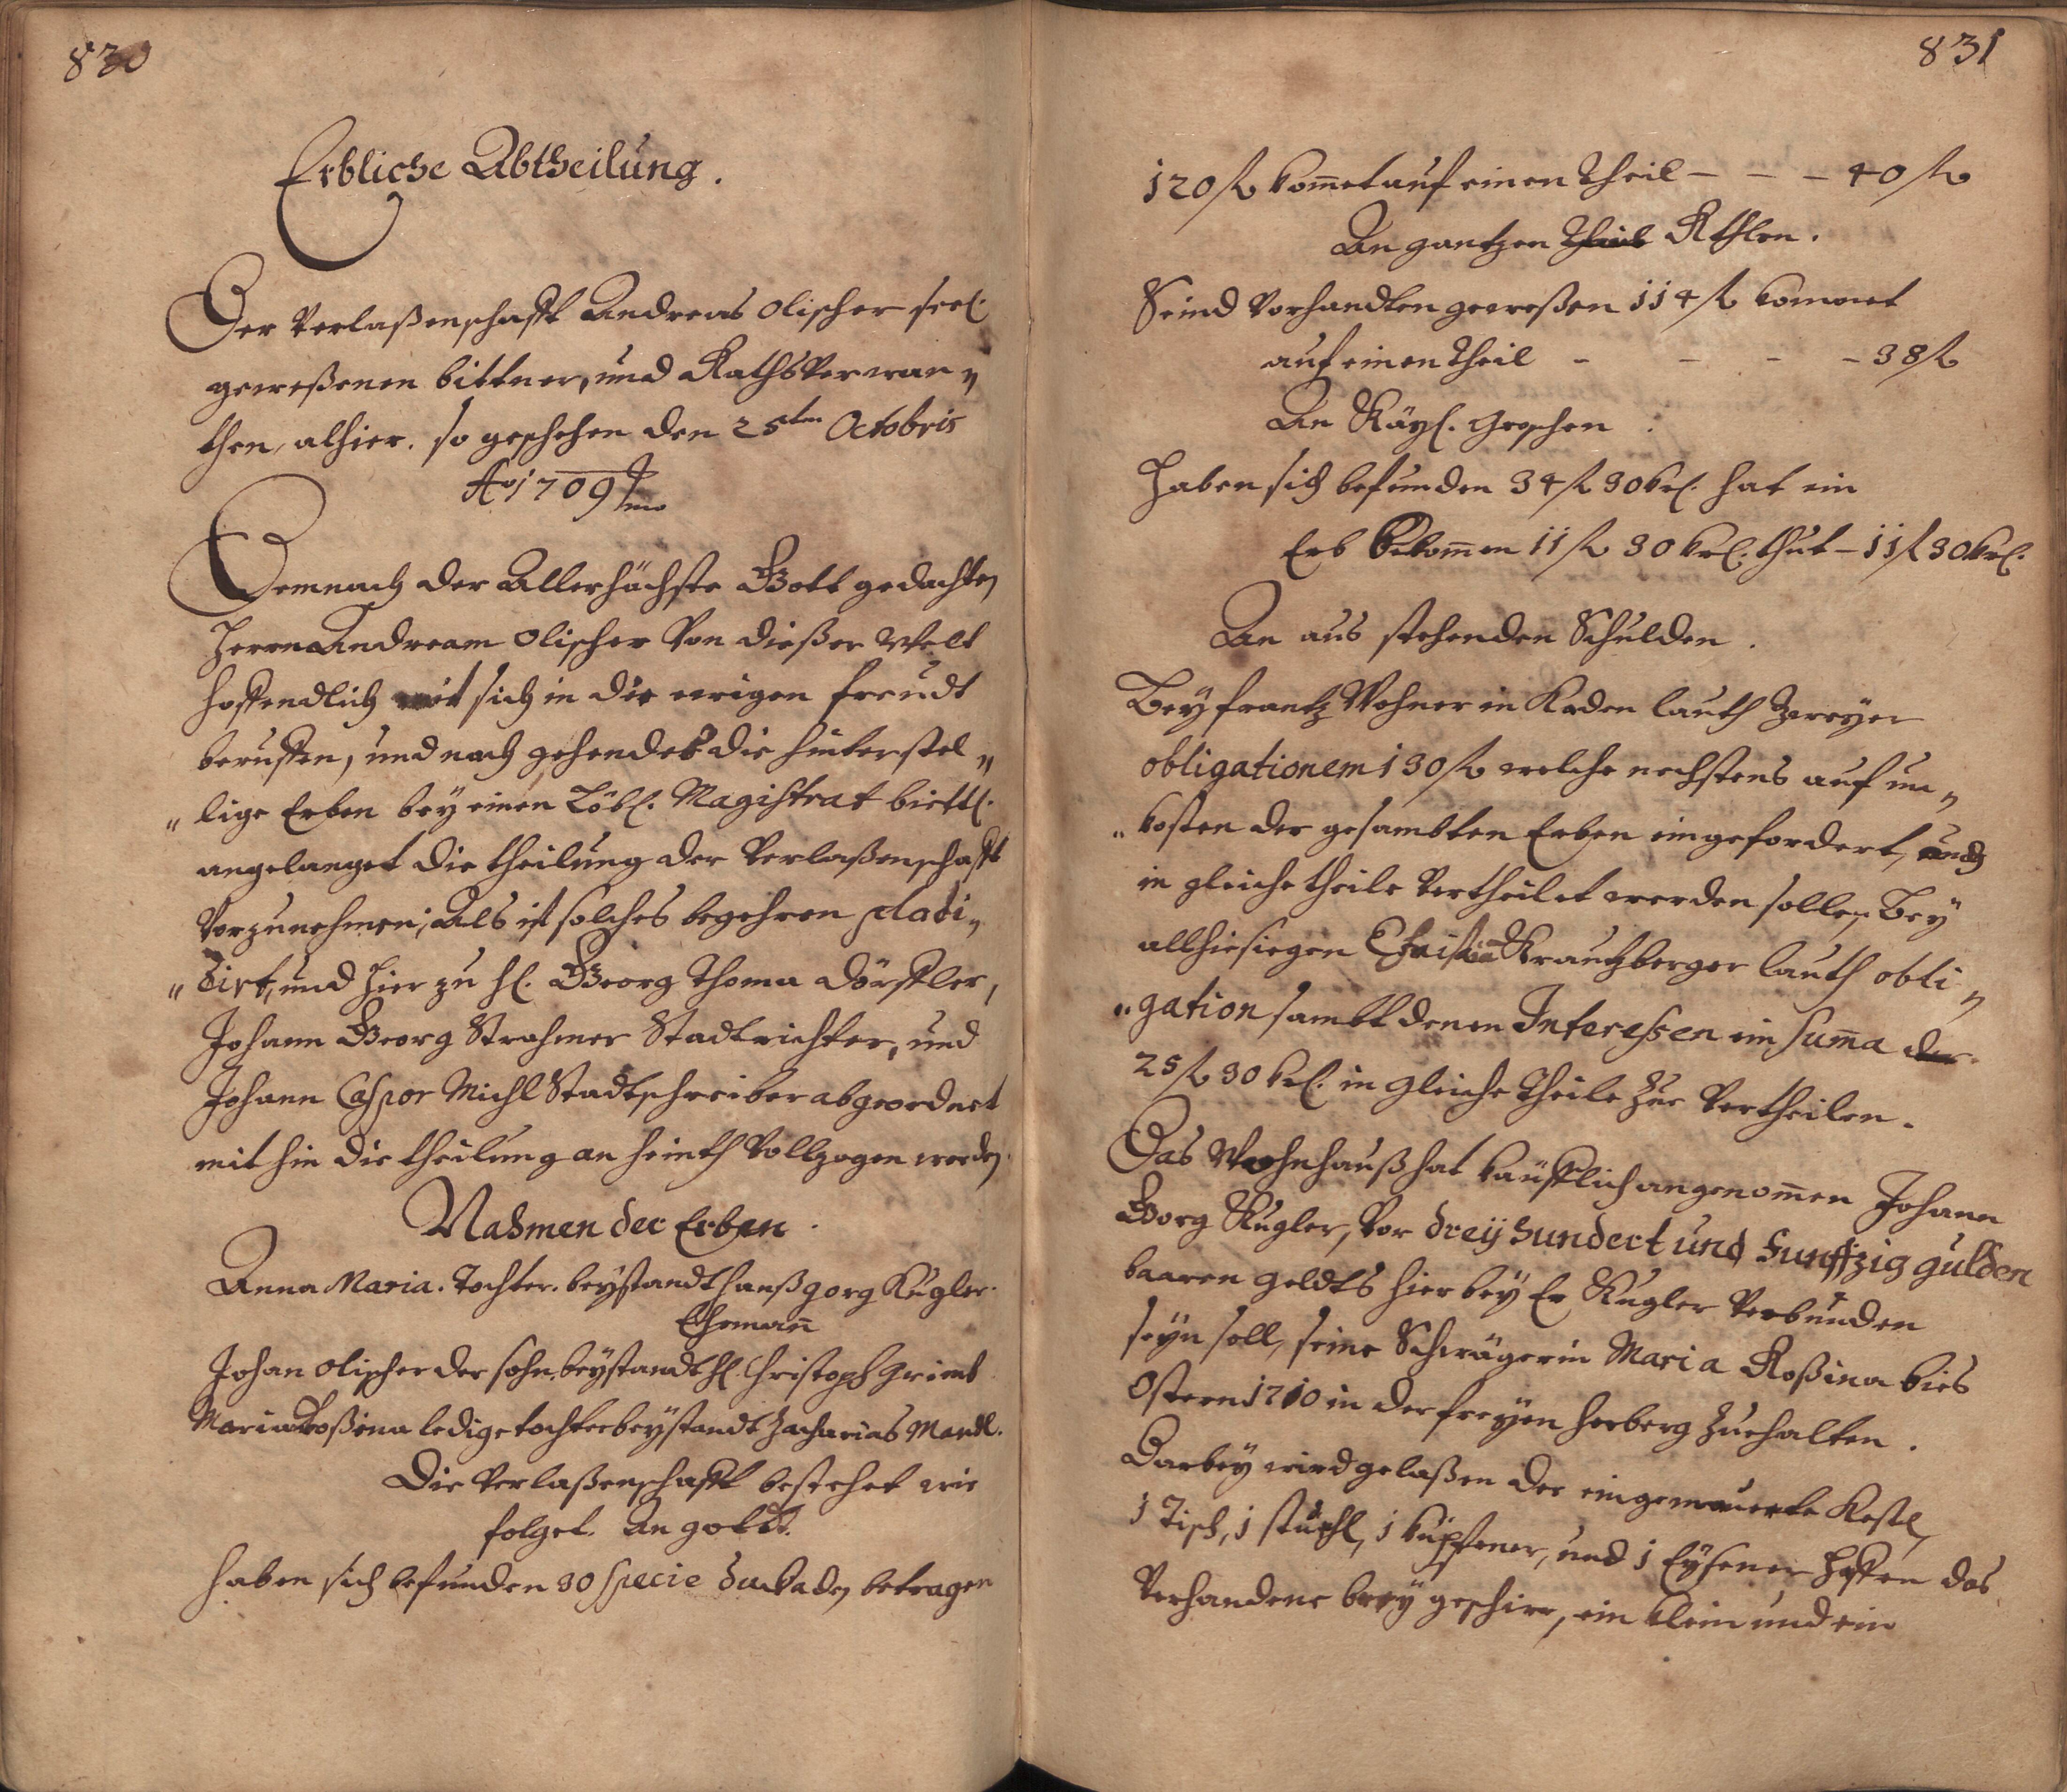 830
Erbliche Abtheilung.
Der Verlaßenschafft Andreas Olischer seel.
geweßenen bittner, und Rathsverwan„
then, alhier. so geschehen den 25ten Octobris
Ao 1709
Demnach der Allerhöchste Gott gedachten
Herrn Andream Olischer von dießer Welt
hoffendlich mit sich in die ewigen freudt
beruffen, und nach gehendts die hinterstel„
„lige Erben bey einen Löbl. Magistrat bittl.
angelanget die theilung der Verlaßenschafft
Vorzunehmen; Als ist solches begehren placi„
„dirt, und hier zu hl. Georg Thoma Dörffler,
Johann Georg Strahmer Stadtrichter, und
Johann Caspor Michl Stadtschreiber abgeordnet
mit hin die theilung an heinth Vollzogen worden.
Nahmen der Erben.
Anna Maria. Tochter. beystandt hanß gorg Kugler.
Ehemann
Johan Olischer der sohn, beystandt hl. Christoph Grimt
Maria Roßina ledige tochter beystandt Zacharias Mandl.
Die Verlaßenschafft bestehet wie
folget. An goldt.
haben sich befunden 30 specie duckaden betragen
831
120 fl kommet auf einen Theil – – – 40 fl
An gantzen Theil Rthlen.
Seind vorhandten geweßen 114 fl kommet
auf einen Theil – – – – 38 fl
An Käyl. Groschen
Haben sich befunden 34 fl 30 krl. hat ein
Erb bekommen 11 fl 30 krl. thut – 11 fl 30 krl.
An aus stehenden Schulden.
Bey frantz Wohner in Kaden lauth Zweyer
obligationem 130 fl welche nechstens auf un„
„kosten der gesambten Erben eingefordert, und
in gleiche theile vertheilet werden sollen, Bey
allhiesiegen Christian Krautzberger lauth obli„
„gation sambt denen Interessen in Summa der
25 fl 30 krl. in gleiche Theile zue vertheilen.
Das Wohnhauß hat käufflich angenommen Johann
Georg Kugler, vor dreyhundert und funffzig gulden
baaren geldts hier bey Er Kugler verbunden
seyn soll, seine Schwägerin Maria Roßina bies
Ostern 1710 in der freyen herberg zu erhalten.
Darbey wird gelaßen der eingemauerte Kestl,
1 Tisch, 1 stuhl, 1 kupffener, und 1 Eysener haffen das
Verhandene brey geschirr, ein klein und ein